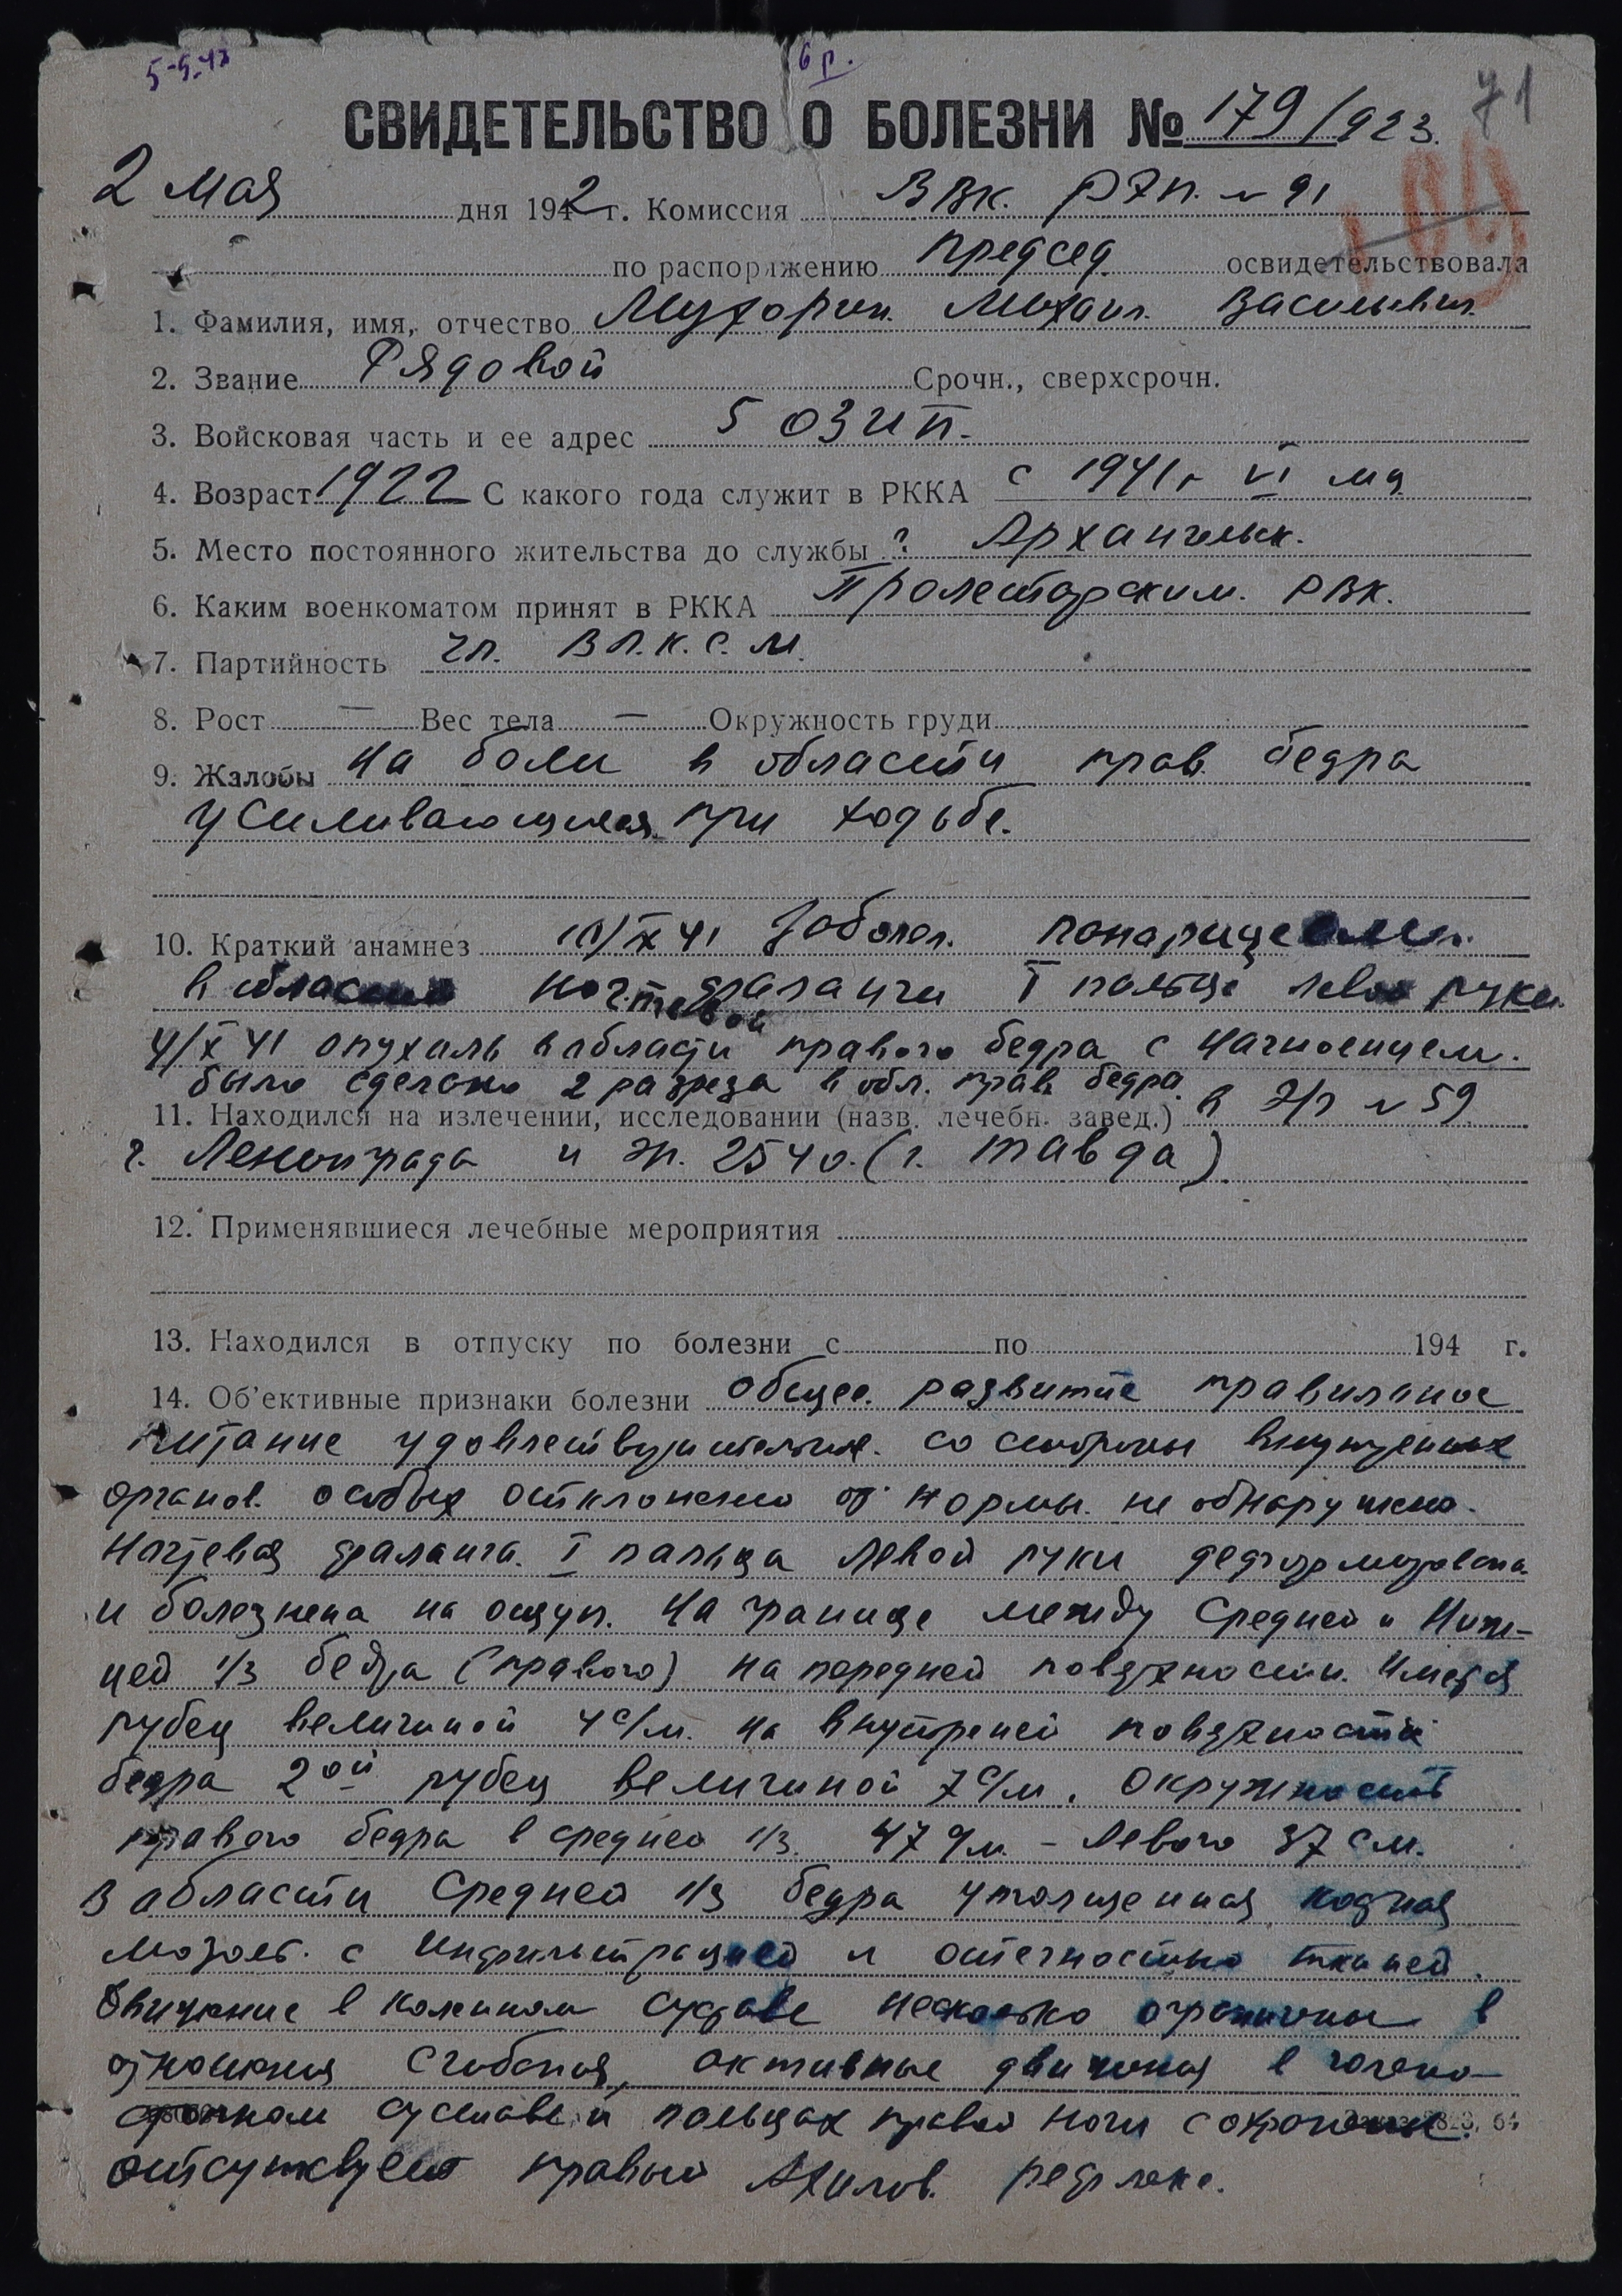 5-5-42
6 р.
71
СВИДЕТЕЛЬСТВО О БОЛЕЗНИ № 179/923.
109
2 мая дня 1942 г. Комиссия ВВК. РЭП. № 91
по распоряжению председ. освидетельствовала
1. Фамилия, имя, отчество Мухорин Михаил Васильевич
2. Звание Рядовой Срочн., сверхсрочн.
3. Войсковая часть и ее адрес 5 ОЗИП.
4. Возраст 1922 С какого года служит в РККА с 1941 г VI мц
5. Место постоянного жительства до службы г. Архангельск.
6. Каким военкоматом принят в РККА Пролетарским. РВК.
7. Партийность чл. ВЛ.К.С.М.
8. Рост — Вес тела — Окружность груди
9. Жалобы на боли в области прав. бедра
усиливающиеся при ходьбе.
10. Краткий анамнез /X 41 Заболел. панарицием.
в области ногтевой фаланги I пальца левой руки.
4/X 41 опухоль в области правого бедра с нагноением.
было сделано 2 разреза в обл. прав. бедра.
11. Находился на излечении, исследовании (назв. лечебн. завед.) в Э/г № 59.
г. Ленинграда и эг. 2540. (г. Тавда).
12. Применявшиеся лечебные мероприятия
13. Находился в отпуску по болезни с по 194 г.
14. Об'ективные признаки болезни Общее. развитие правильное
питание удовлетворительное. со стороны внутренних
органов. особых отклонению от нормы. не обнаружено.
Ногтевая фаланга. I пальца левой руки деформирована
и болезнена на ощуп. На границе между средней и Ниж-
ней 1/3 бедра (правого) на передней поверхности. Имеется
рубец величиной 4 с/м. на внутреней поверхности
бедра 2ой рубец величиной 7 с/м. Окружность
правого бедра в средней 1/3. 47 с/м. - Левого 37 см.
В области средней 1/3 бедра утолщенная костная
мозоль. с инфильтрацией и отечностью тканей.
Движение в коленном суставе несколько ограничены в
отношения сгибания, активные движения в голено-
стопном суставе и пальцах правой ноги сохранены.
отсутствует правый Ахилов. рефлекс.